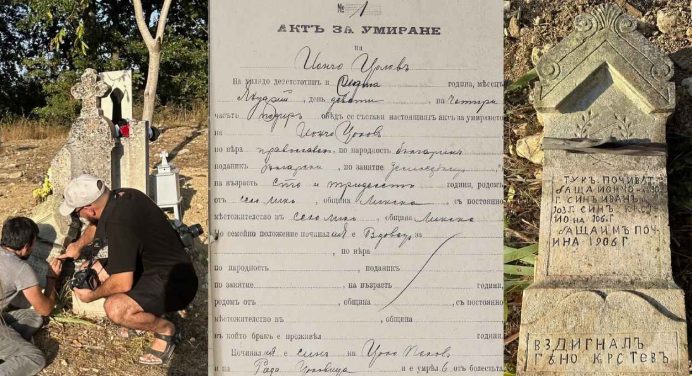 № 1
АКТЪ ЗА УМИРАНЕ
на
Йончо Урловъ
На хилядо деветстотинъ и година, мѣсецъ
Януарий, день девети на четири
часътъ подиръ обѣдъ се състави настоящиятъ актъ за умирането
на Йончо Цоковъ
по вѣра православенъ по народность българинъ
поданикъ български по занятие земледѣлецъ
на възрасть сто и тридесеть години, родомъ
отъ село Ликъ, община Ликска, съ постоянно
мѣстожителство въ село Ликъ, община Ликска
по семейно положение починалия е вдовецъ за
по вѣра
по народность, поданикъ
по занятие на възрасть години
родомъ отъ, община, съ постоянно
мѣстожителство въ, община
въ който бракъ е проживѣлъ години.
Починалия е синъ на Цоко
и на Рада Цоковица и е умрѣлъ отъ болесть
ТУКЪ ПОЧИВАТ
БАЩА ЙОНЧО
Г. СИНЪ ИВАНЪ
Г. СИНЪ
НА Г.
БАЩА ИМЪ ПОЧИ
НА 1906 Г
ВЗДИГНАЛЪ
ГЪНО КРСТЕВЪ